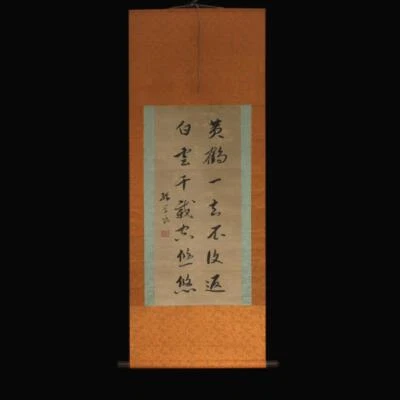 黄鹤一去不復返
白雲千載空悠悠